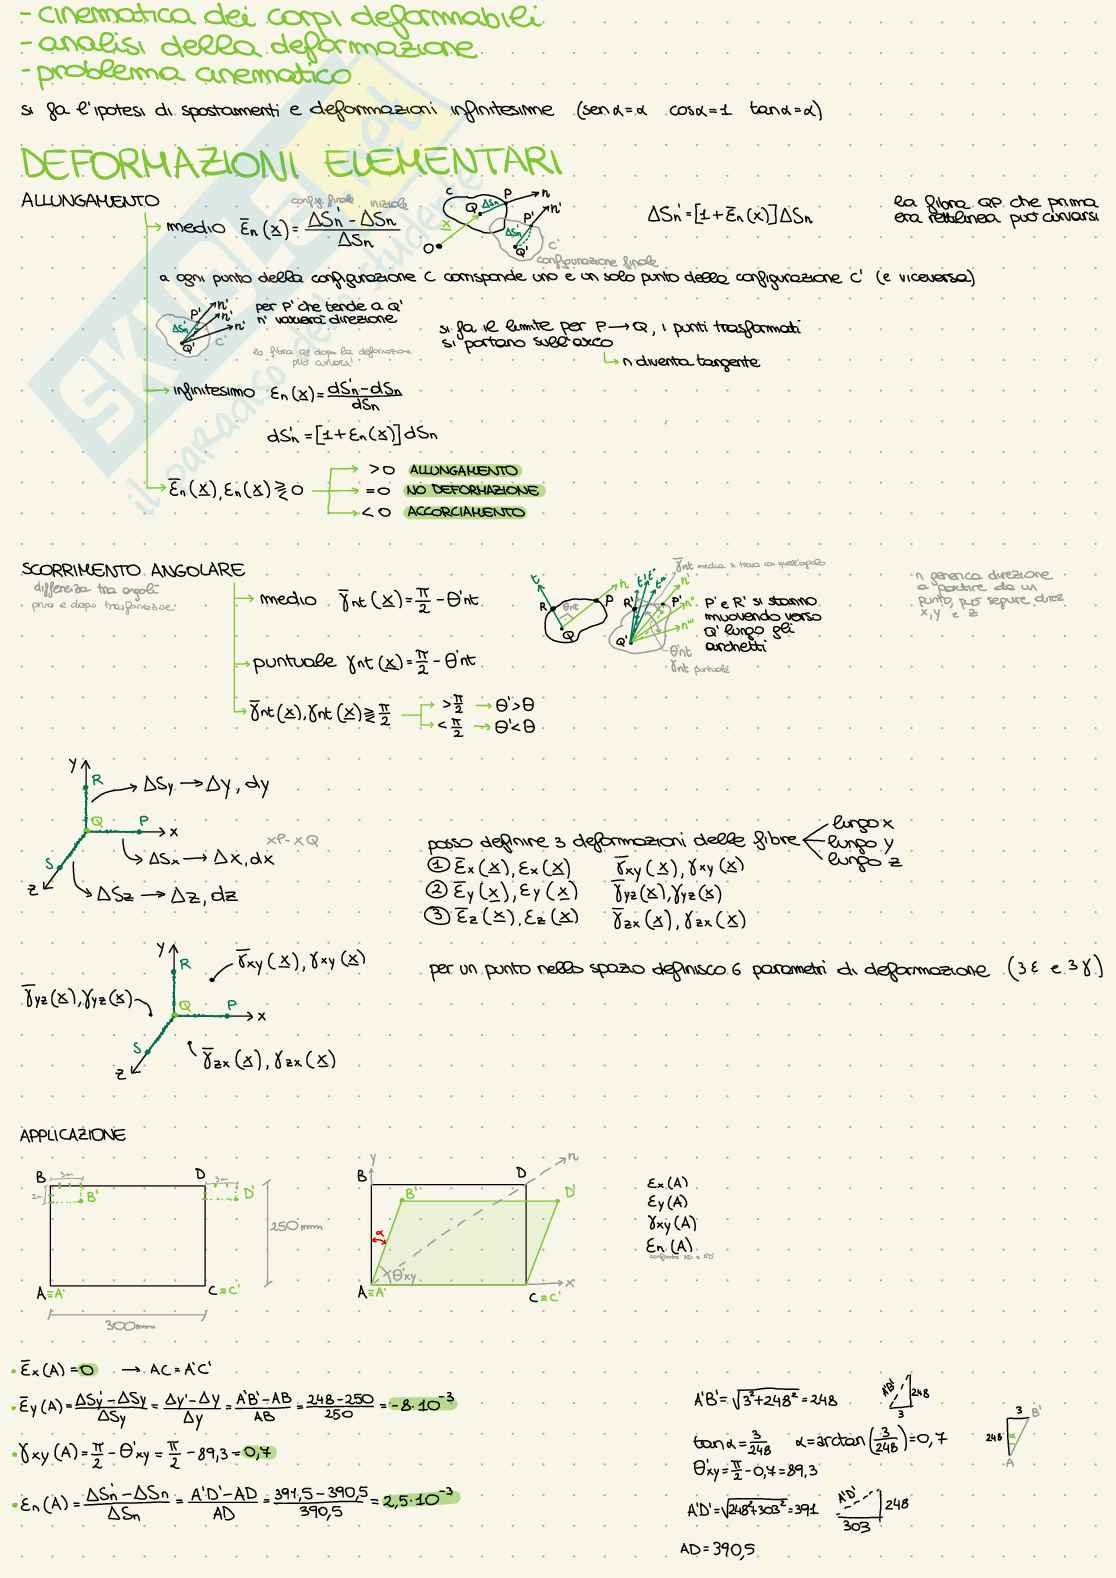 - cinematica dei corpi deformabili
- analisi della deformazione
- problema cinematico
si fa l'ipotesi di spostamenti e deformazioni infinitesime (senα=α cosα=1 tanα=α)
DEFORMAZIONI ELEMENTARI
ALLUNGAMENTO
config. finale iniziale
medio ε̄n(x) = (ΔS'n - ΔSn)/ΔSn
C Q ΔSn P n P' n' ΔS'n Q' x O C'
configurazione finale
ΔS'n = [1+ε̄n(x)]ΔSn
la fibra QP che prima
era rettilinea può curvarsi
a ogni punto della configurazione C corrisponde uno e un solo punto della configurazione C' (e viceversa)
P' n' n' n' ΔS'n Q' C'
per P' che tende a Q'
n' varierà direzione
la fibra QP dopo la deformazione
può curvarsi
si fa il limite per P→Q, i punti trasformati
si portano sull'arco
n diventa tangente
infinitesimo εn(x) = (dS'n - dSn)/dSn
dS'n = [1+εn(x)]dSn
ε̄n(x), εn(x) ⪌ 0
>0 ALLUNGAMENTO
=0 NO DEFORMAZIONE
<0 ACCORCIAMENTO
SCORRIMENTO ANGOLARE
differenza tra angoli
prima e dopo trasformazione
medio γ̄nt(x) = π/2 - θ'nt
puntuale γnt(x) = π/2 - θ'nt
γ̄nt(x), γnt(x) ⪌ π/2
>π/2 → θ'>θ
<π/2 → θ'<θ
t n R θnt P Q
R' t' t'' t''' n' P' n'' n''' Q'
θ'nt
γnt puntuale
P' e R' si stanno
muovendo verso
Q' lungo gli
archetti
n generica direzione
a partire da un
punto, può seguire direz
x, y e z
y R Q P x S z
ΔSy → Δy, dy
ΔSx → Δx, dx
xP - xQ
ΔSz → Δz, dz
posso definire 3 deformazioni delle fibre
lungo x
lungo y
lungo z
① ε̄x(x), εx(x) γ̄xy(x), γxy(x)
② ε̄y(x), εy(x) γ̄yz(x), γyz(x)
③ ε̄z(x), εz(x) γ̄zx(x), γzx(x)
y R Q P x S z
γ̄xy(x), γxy(x)
γ̄yz(x), γyz(x)
γ̄zx(x), γzx(x)
per un punto nello spazio definisco 6 parametri di deformazione (3ε e 3γ)
APPLICAZIONE
B 3m D 3m
2m B' D'
250mm
A≡A' C≡C'
300mm
y B D n
B' D'
α
θ'xy
A≡A' C≡C' x
εx(A)
εy(A)
γxy(A)
εn(A)
• ε̄x(A) = 0 → AC = A'C'
• ε̄y(A) = (ΔSy' - ΔSy)/ΔSy = (Δy' - Δy)/Δy = (A'B' - AB)/AB = (248-250)/250 = -8·10⁻³
• γxy(A) = π/2 - θ'xy = π/2 - 89,3 = 0,7
• εn(A) = (ΔS'n - ΔSn)/ΔSn = (A'D' - AD)/AD = (391,5 - 390,5)/390,5 = 2,5·10⁻³
A'B' = √(3²+248²) = 248
A'B' 248 3
tanα = 3/248 α = arctan(3/248) = 0,7
3 B' 248 α A
θ'xy = π/2 - 0,7 = 89,3
A'D' = √(248²+303²) = 391
A'D' 248 303
AD = 390,5
SKUOLA.net
il paradiso dello studente